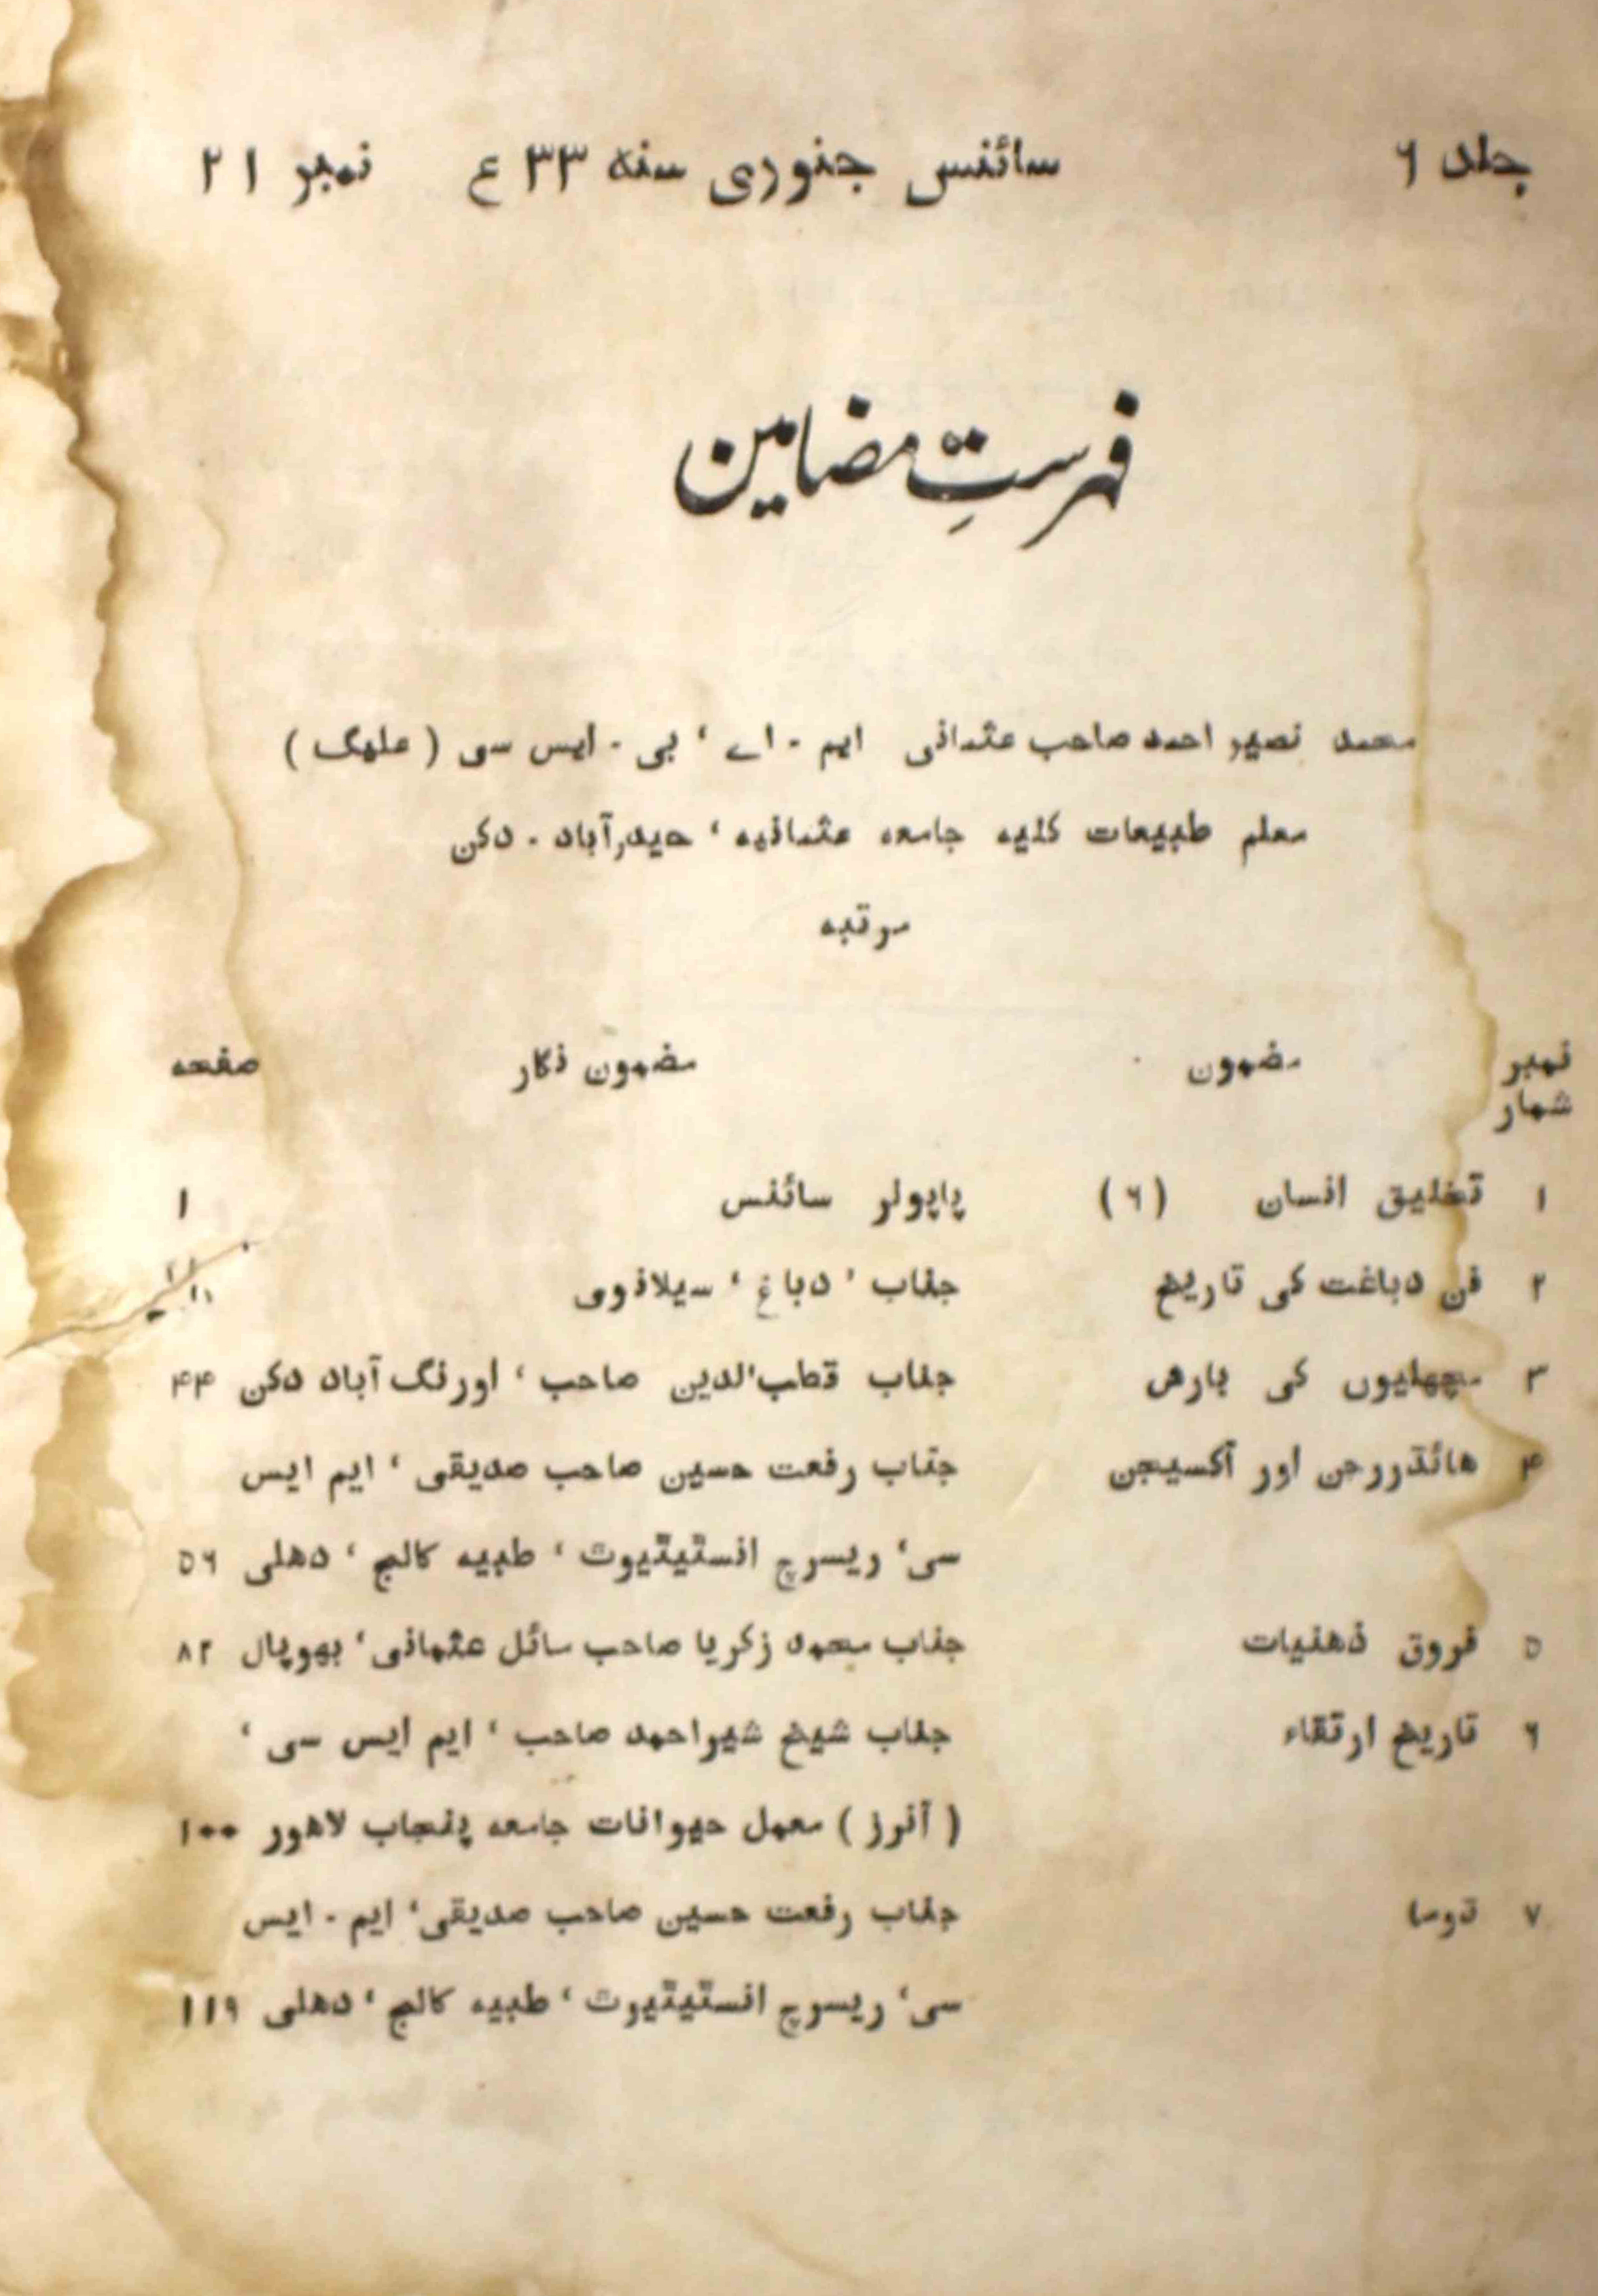 جلد ۶ سائنس جنوری سنہ ۳۳ ع نمبر ۲۱
فہرستِ مضامین
محمد نصیر احمد صاحب عثمانی ایم - اے ' بی - ایس سی ( علیگ )
معلم طبیعات کلیہ جامعہ عثمانیہ ' حیدرآباد - دکن
مرتبہ
نمبر شمار مضمون مضمون نگار صفحہ
۱ تخلیق انسان (۶) پاپولر سائنس ۱
۲ فن دباغت کی تاریخ جناب ' دباغ ' سیلانوی
۳ مچھلیوں کی بارش جناب قطب الدین صاحب ' اورنگ آباد دکن ۴۴
۴ ھائڈروجن اور آکسیجن جناب رفعت حسین صاحب صدیقی ' ایم ایس
سی ' ریسرچ انسٹیٹیوٹ ' طبیہ کالج ' دھلی ۵۶
۵ فروق ذھنیات جناب محمد زکریا صاحب سائل عثمانی ' بھوپال ۸۲
۶ تاریخ ارتقاء جناب شیخ شیراحمد صاحب ' ایم ایس سی '
( آنرز ) معمل حیوانات جامعہ پنجاب لاھور ۱۰۰
۷ جناب رفعت حسین صاحب صدیقی ' ایم - ایس
سی ' ریسرچ انسٹیٹیوٹ ' طبیہ کالج ' دھلی ۱۱۹